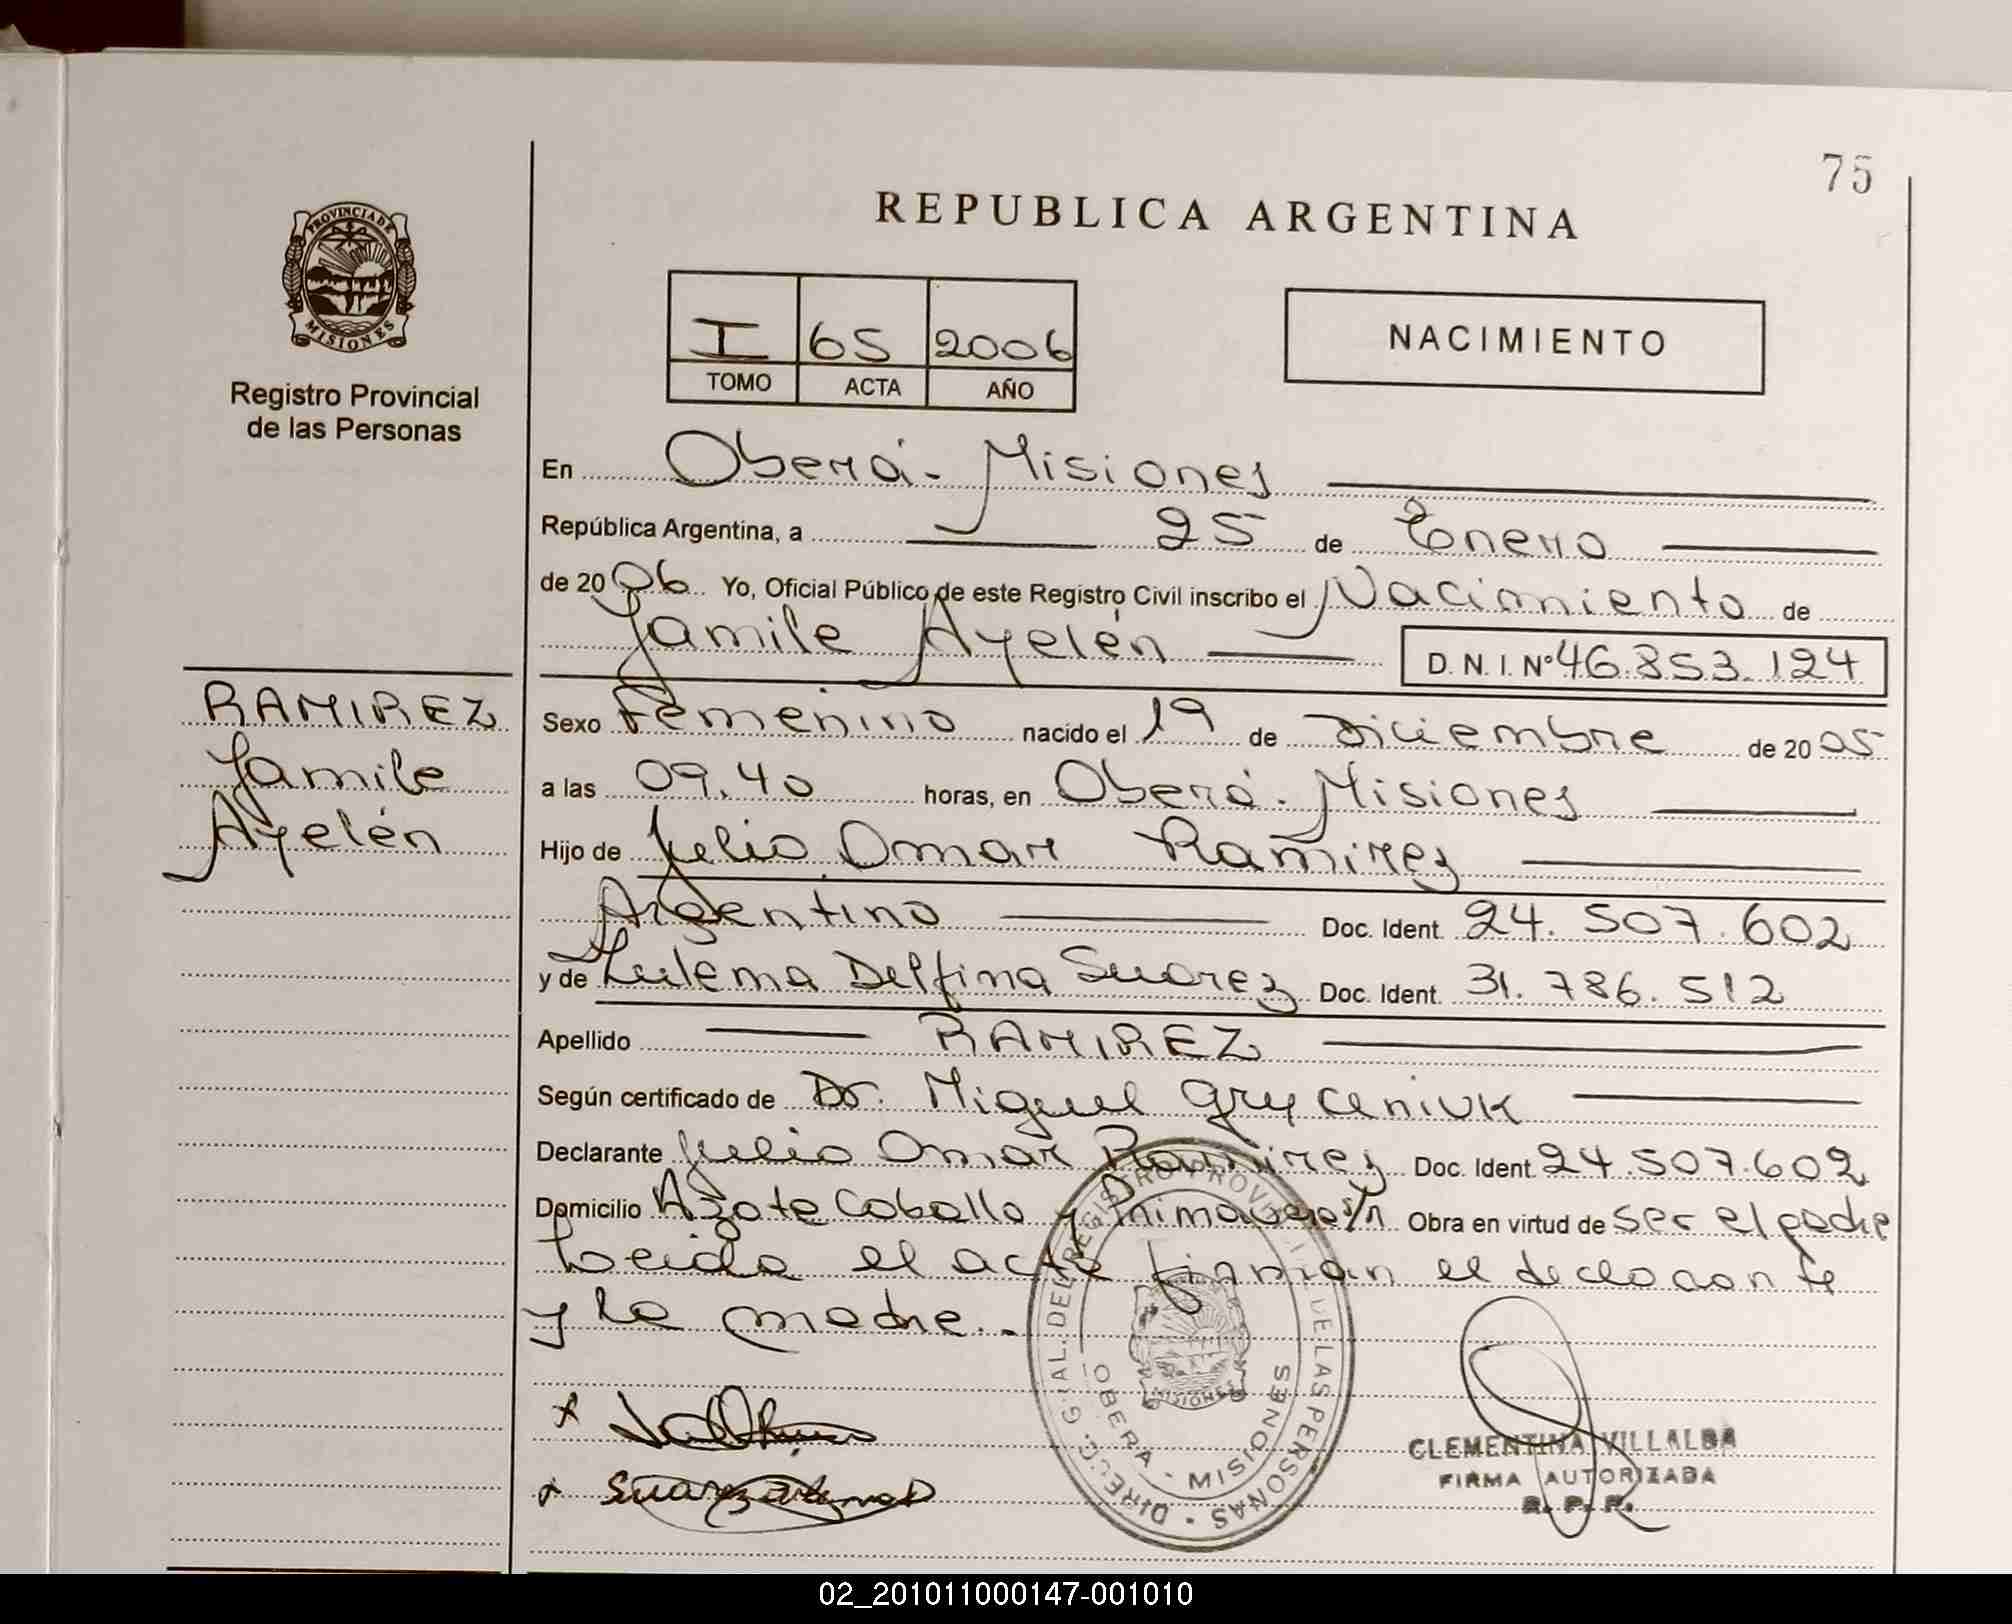 75
REPUBLICA ARGENTINA
PROVINCIA DE
MISIONES
Registro Provincial
de las Personas
I 65 2006
TOMO ACTA AÑO
NACIMIENTO
En Oberá - Misiones
República Argentina, a 25 de Enero
de 2006 Yo, Oficial Público de este Registro Civil inscribo el Nacimiento de
Yamile Ayelén D.N.I. Nº 46.853.124
RAMIREZ
Yamile
Ayelén
Sexo Femenino nacido el 19 de Diciembre de 2005
a las 09.40 horas, en Oberá - Misiones
Hijo de Julio Omar Ramirez
Argentino Doc. Ident. 24.507.602
y de Zulema Delfina Suarez Doc. Ident. 31.786.512
Apellido RAMIREZ
Según certificado de Dr. Miguel Gryceniuk
Declarante Julio Omar Ramirez Doc. Ident. 24.507.602
Domicilio Azote Caballo y Primavera s/n Obra en virtud de ser el padre
Leida el acta firman el declarante
y la madre.-
DIRECC. GRAL. DEL REGISTRO PROVINCIAL DE LAS PERSONAS
MISIONES
OBERA - MISIONES
CLEMENTINA VILLALBA
FIRMA AUTORIZADA
R. P. P.
Suarez
02_201011000147-001010